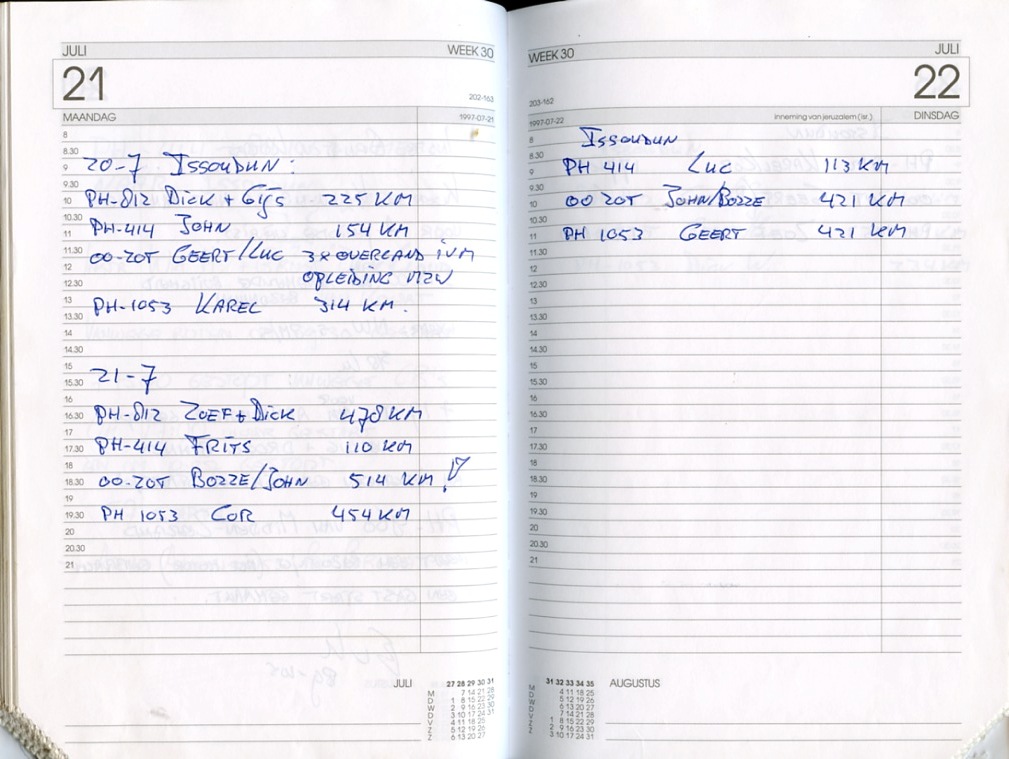 JULI WEEK 30
21
202-163
MAANDAG 1997-07-21
8
8.30
9 20-7 ISSOUDUN:
9.30
10 PH-812 DICK + GIJS 225 KM
10.30
11 PH-414 JOHN 154 KM
11.30 OO-ZOT GEERT/LUC 3x OVERLAND IVM
12 OPLEIDING VIZN
12.30
13 PH-1053 KAREL 314 KM.
13.30
14
14.30
15
15.30 21-7
16
16.30 PH-812 ZOEF + DICK 478 KM
17
17.30 PH-414 FRITS 110 KM
18
18.30 OO-ZOT BOZZE/JOHN 514 KM !
19
19.30 PH 1053 COR 454 KM
20
20.30
21
JULI
27 28 29 30 31
M 7 14 21 28
D 1 8 15 22 29
W 2 9 16 23 30
D 3 10 17 24 31
V 4 11 18 25
Z 5 12 19 26
Z 6 13 20 27
WEEK 30 JULI
22
203-162
1997-07-22 inneming van jeruzalem (isr.) DINSDAG
8 ISSOUDUN
8.30
9 PH 414 LUC 113 KM
9.30
10 OO ZOT JOHN/BOZZE 421 KM
10.30
11 PH 1053 GEERT 421 KM
11.30
12
12.30
13
13.30
14
14.30
15
15.30
16
16.30
17
17.30
18
18.30
19
19.30
20
20.30
21
31 32 33 34 35 AUGUSTUS
M 4 11 18 25
D 5 12 19 26
W 6 13 20 27
D 7 14 21 28
V 1 8 15 22 29
Z 2 9 16 23 30
Z 3 10 17 24 31